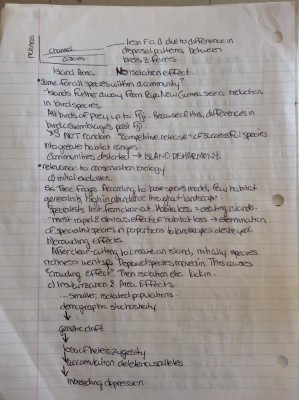 richness
less F.a.B. due to difference in
channel
dispersal patterns between
azores
birds & ferns
Island Area. No isolation effect
• Same for all species within a community?
- Islands further away from Papa New Guinea see a reduction
in bird species.
All birds of prey up to Fiji. Because of this, differences in
bird assemblages past Fiji.
↳ IS NOT random. Competitive release of successful species
into greater habitat ranges.
Communities distorted → ISLAND DISHARMONY.
• Relevance to conservation biology
a) initial exclusion.
Ex: Tree Frogs. According to base-species model, few habitat
generalists, high in abundance throughout landscape.
Specialists lost from clear-cut. Habitat loss = creating islands.
- most rapid & obvious effect of habitat loss → elimination
of specialist species in proportion to landscape destroyed
b) crowding effects.
After clear-cutting to create an island, initially species
richness went up. Displaced species moved in. This causes
"crowding effect". Then isolation etc. kick in.
c) Insularization & Area Effects.
- smaller, isolated populations.
demographic stochasticity
↓
genetic drift
↓
loss of heterozygosity
↓
accumulation deleterious alleles
↓
inbreeding depression